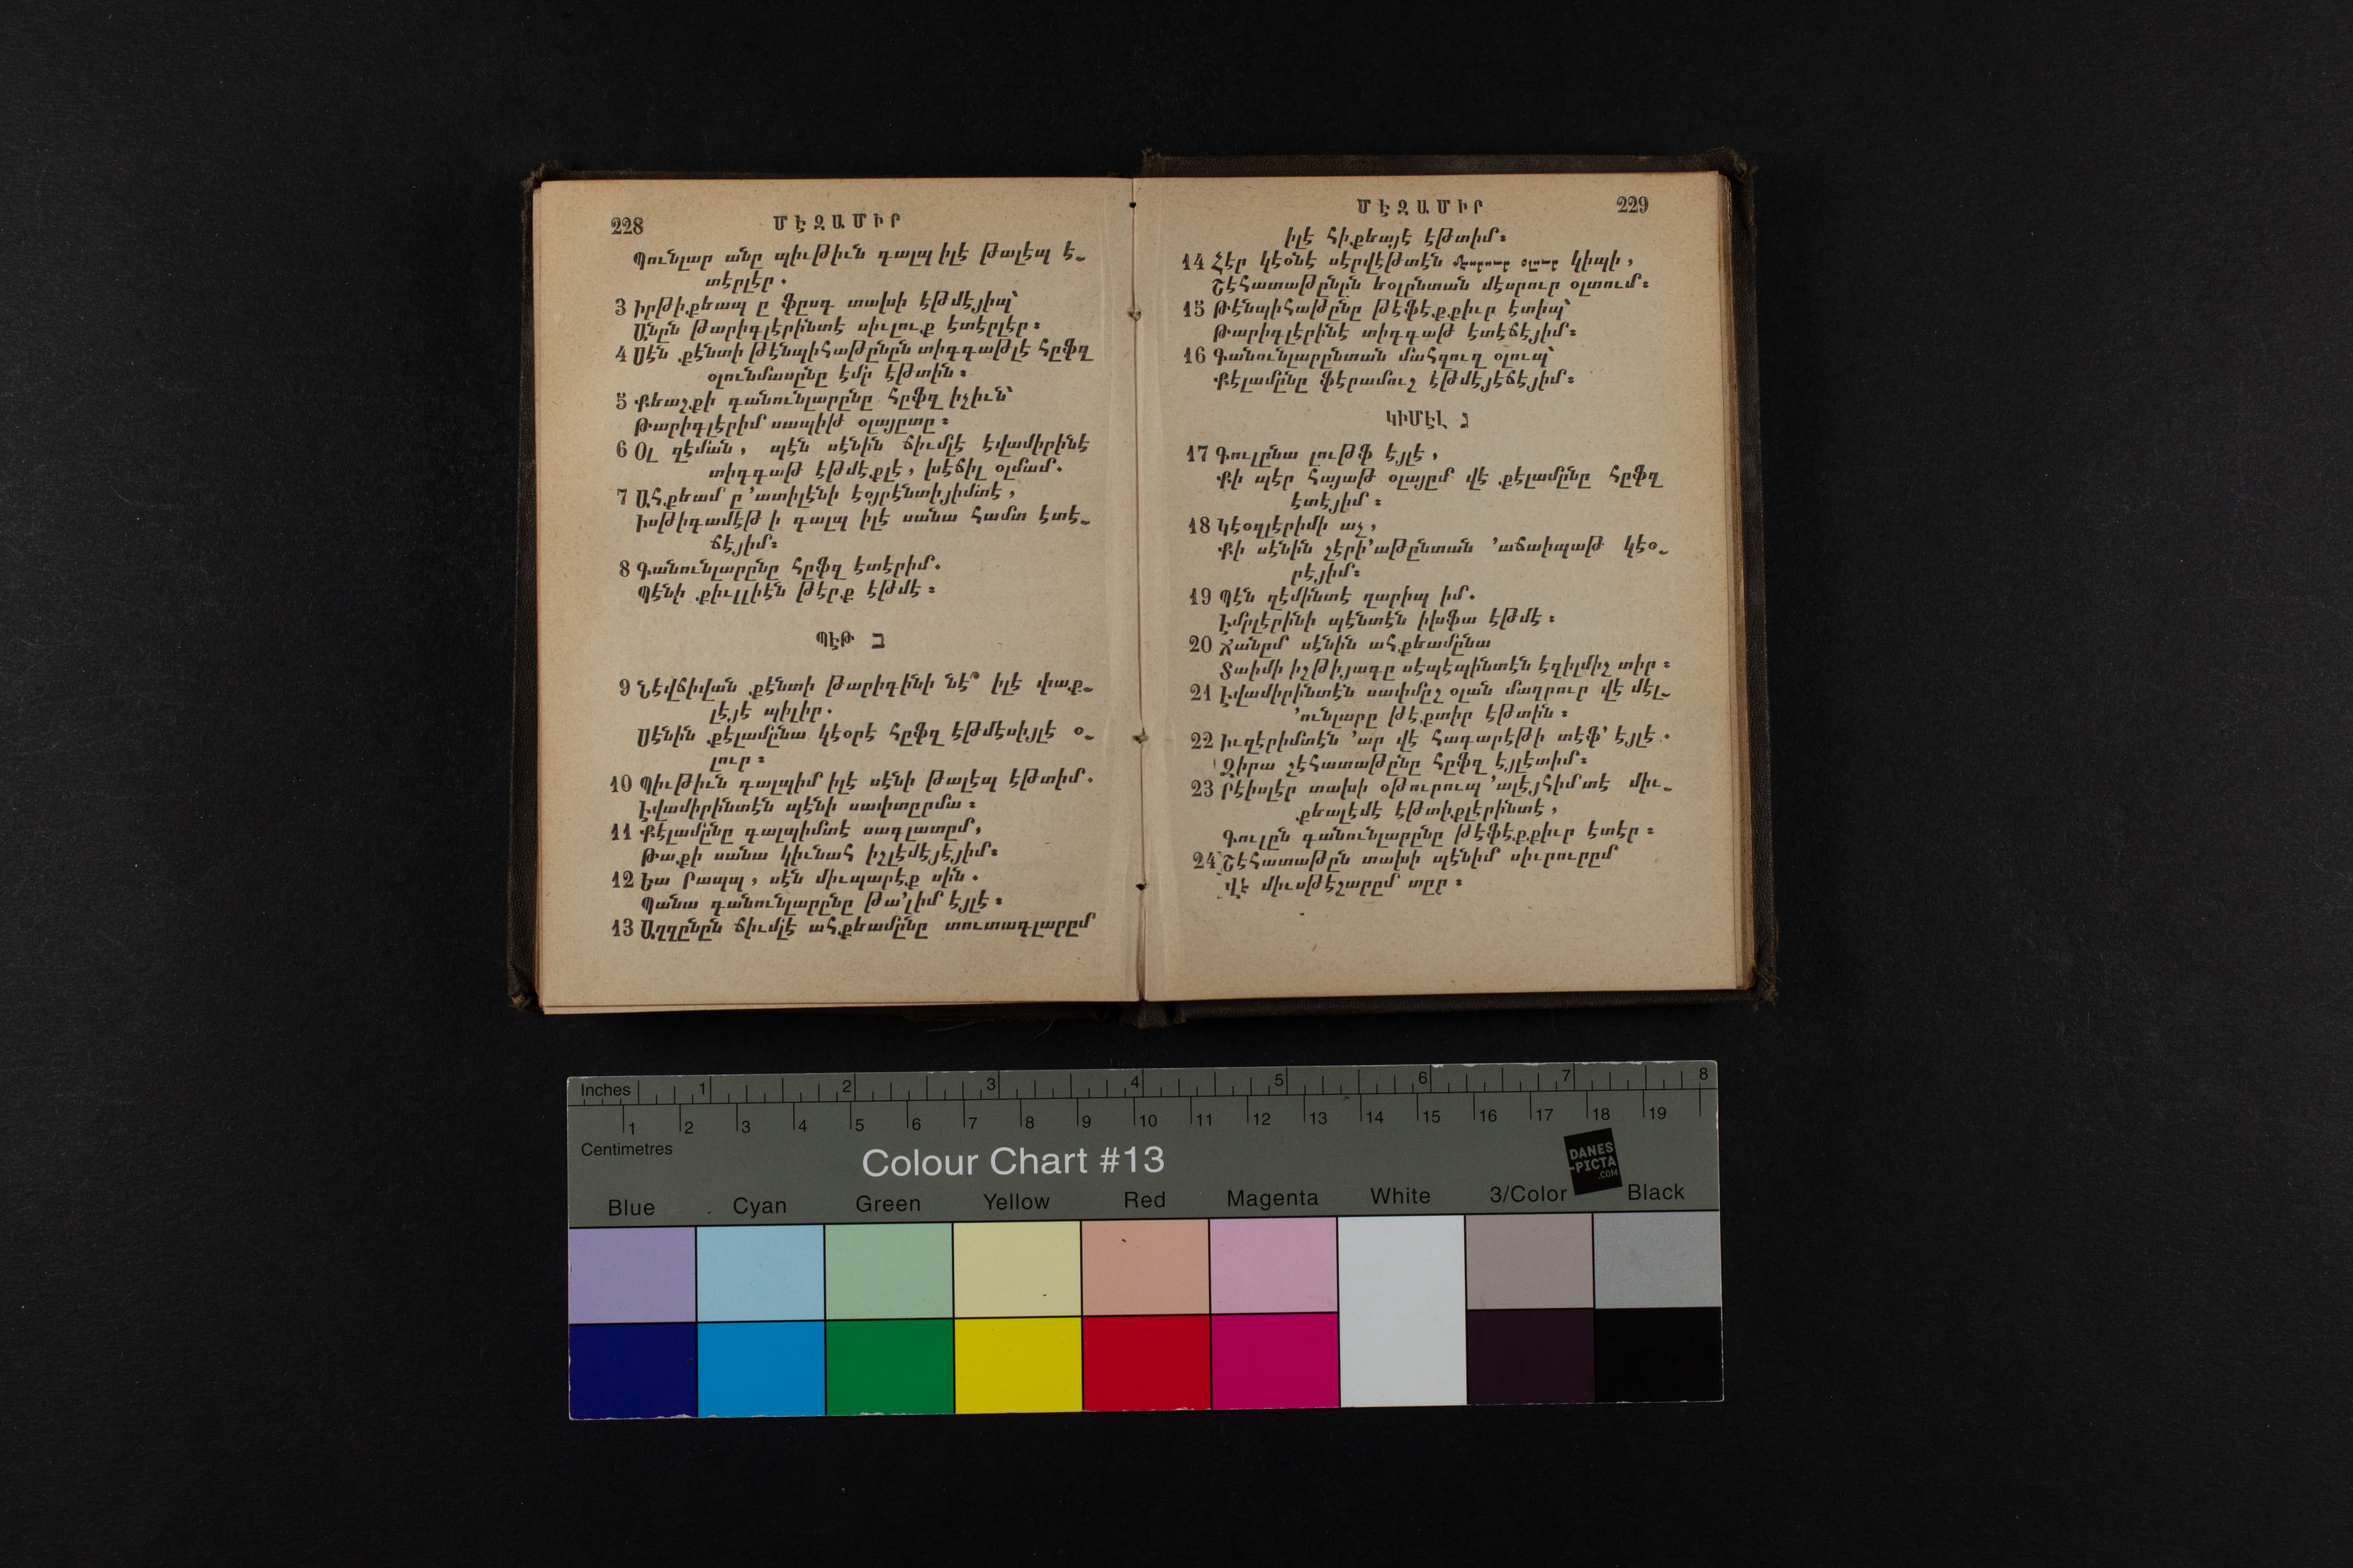 228 ՄԷԶԱՄԻՐ
Պունլար անը պիւթիւն դալպ իլէ թալէպ է֊
տէրլէր.
3 Իրթիքեապ ը ֆըսդ տախի էթմէյիպ՝
Անըն թարիգլէրինտէ սիւլուք էտէրլէր։
4 Սէն քէնտի թէնպիհաթընըն տիգգաթլէ հըֆզ
օլունմասընը էմր էթտին։
5 Քեաշքի գանունլարընը հըֆզ իչիւն՝
Թարիգլէրիմ սապիթ օլայըտը։
6 Օլ զէման, պէն սէնին ճիւմլէ էվամիրինէ
տիգգաթ էթմէքլէ, խէճիլ օլմամ.
7 Ահքեամ ը ՚ատիլէնի էօյրէնտիյիմտէ,
Իսթիգամէթ ի գալպ իլէ սանա համտ էտէ֊
ճէյիմ։
8 Գանունլարընը հըֆզ էտէրիմ.
Պէնի քիւլլիէն թէրք էթմէ։
ՊԷԹ ב
9 Նէվճիվան քէնտի թարիգինի նէ՞ իլէ փաք֊
լէյէ պիլիր.
Սէնին քէլամընա կէօրէ հըֆզ էթմէսիյլէ օ֊
լուր։
10 Պիւթիւն գալպիմ իլէ սէնի թալէպ էթտիմ.
Էվամիրինտէն պէնի սափտըրմա։
11 Քէլամընը գալպիմտէ սագլատըմ,
Թաքի սանա կիւնահ իշլէմէյէյիմ։
12 Եա Րապպ, սէն միւպարէք սին.
Պանա գանունլարընը թա՚լիմ էյլէ։
13 Աղզընըն ճիւմլէ ահքեամընը տուտագլարըմ
ՄԷԶԱՄԻՐ 229
իլէ հիքեայէ էթտիմ։
14 Հէր կէօնէ սէրվէթտէն մէսրուր օլուր կիպի,
Շէհատաթընըն եօլընտան մէսրուր օլտում։
15 Թէնպիհաթընը թէֆէքքիւր էտիպ՝
Թարիգլէրինէ տիգգաթ էտէճէյիմ։
16 Գանունլարընտան մահզուզ օլուպ՝
Քէլամընը ֆէրամուշ էթմէյէճէյիմ։
ԿԻՄԷԼ ג
17 Գուլընա լութֆ էյլէ,
Քի պէր հայաթ օլայըմ վէ քէլամընը հըֆզ
էտէյիմ։
18 Կէօզլէրիմի աչ,
Քի սէնին շէրի՚աթընտան ՚աճաիպաթ կէօ֊
րէյիմ։
19 Պէն զէմինտէ ղարիպ իմ.
Էմրլէրինի պէնտէն իխֆա էթմէ։
20 Ճանըմ սէնին ահքեամընա
Տաիմի իշթիյագը սէպէպինտէն էզիլմիշ տիր։
21 Էվամիրինտէն սափմըշ օլան մաղրուր վէ մէլ֊
՚ունլարը թէքտիր էթտին։
22 Իւզէրիմտէն ՚ար վէ հագարէթի տէֆ՚ էյլէ.
Զիրա շէհատաթընը հըֆզ էյլէտիմ։
23 Րէիսլէր տախի օթուրուպ ՚ալէյհիմտէ միւ֊
քեալէմէ էթտիքլէրինտէ,
Գուլըն գանունլարընը թէֆէքքիւր էտէր։
24 Շէհատաթըն տախի պէնիմ սիւրուրըմ
Վէ միւսթէշարըմ տըր։
Inches 1 2 3 4 5 6 7 8
1 2 3 4 5 6 7 8 9 10 11 12 13 14 15 16 17 18 19
Centimetres
Colour Chart #13
DANES
-PICTA
.COM
Blue Cyan Green Yellow Red Magenta White 3/Color Black